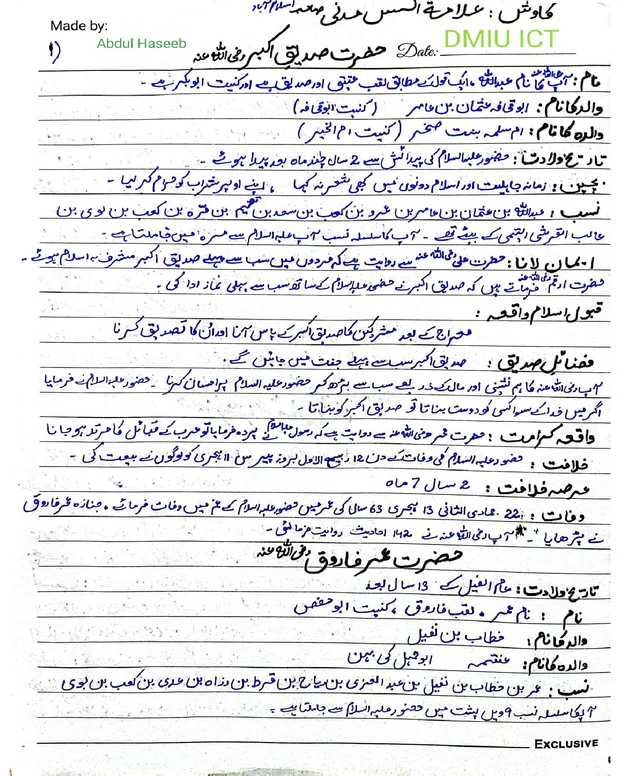 کاوش: علامہ شمس مدنی صاحب اسلام آباد
Made by:
Abdul Haseeb
DMIU ICT
1)
حضرت صدیق اکبر رضی اللہ عنہ
Date:
نام: آپ کا نام عبداللہ، ایک قول کے مطابق لقب عتیق اور صدیق ہے اور کنیت ابوبکر ہے۔
والد کا نام: ابو قحافہ عثمان بن عامر (کنیت ابو قحافہ)
والدہ کا نام: ام سلمہ بنت صخر (کنیت ام الخیر)
تاریخ ولادت: حضور علیہ السلام کی پیدائش سے 2 سال چند ماہ بعد پیدا ہوئے۔
بچپن: زمانہ جاہلیت اور اسلام دونوں میں کبھی شعر نہ کہا، اپنے اوپر شراب کو حرام کر لیا۔
نسب: عبداللہ بن عثمان بن عامر بن عمرو بن کعب بن سعد بن تمیم بن مرہ بن کعب بن لوی بن
غالب القرشی التیمی کے بیٹے تھے۔ آپ کا سلسلہ نسب آپ علیہ السلام سے مرہ میں جا ملتا ہے۔
ایمان لانا: حضرت علی رضی اللہ عنہ سے روایت ہے کہ مردوں میں سب سے پہلے صدیق اکبر مشرف بہ اسلام ہوئے۔
حضرت ارقم رضی اللہ عنہ فرماتے ہیں کہ صدیق اکبر نے حضور علیہ السلام کے ساتھ سب سے پہلی نماز ادا کی۔
قبول اسلام واقعہ:
معراج کے بعد مشرکین کا صدیق اکبر کے پاس آنا اور ان کا تصدیق کرنا
فضائل صدیق: صدیق اکبر سب سے پہلے جنت میں جائیں گے۔
آپ رضی اللہ عنہ کا ہم نشینی اور مال کے ذریعے سب سے بڑھ کر حضور علیہ السلام پر احسان کرنا۔ حضور علیہ السلام نے فرمایا
اگر میں خدا کے سوا کسی کو دوست بناتا تو صدیق اکبر کو بناتا۔
واقعہ کرامت: حضرت عمر رضی اللہ عنہ سے روایت ہے کہ رسول نے پردہ فرمایا تو عرب کے قبائل کا مرتد ہو جانا
خلافت: حضور علیہ السلام کی وفات کے دن 12 ربیع الاول بروز پیر سن 11 ہجری کو لوگوں نے بیعت کی۔
عرصہ خلافت: 2 سال 7 ماہ
وفات: 22 جمادی الثانی 13 ہجری 63 سال کی عمر میں حضور علیہ السلام کے غم میں وفات فرمائی، جنازہ عمر فاروق
نے پڑھایا۔ آپ رضی اللہ عنہ نے 142 احادیث روایت فرمائیں۔
حضرت عمر فاروق رضی اللہ عنہ
تاریخ ولادت: عام الفیل کے 13 سال بعد
نام: نام عمر، لقب فاروق، کنیت ابو حفص
والد کا نام: خطاب بن نفیل
والدہ کا نام: عنتمہ ابوجہل کی بہن
نسب: عمر بن خطاب بن نفیل بن عبدالعزی بن ریاح بن قرط بن رزاہ بن عدی بن کعب بن لوی
آپ کا سلسلہ نسب 9 ویں پشت میں حضور علیہ السلام سے جا ملتا ہے۔
EXCLUSIVE